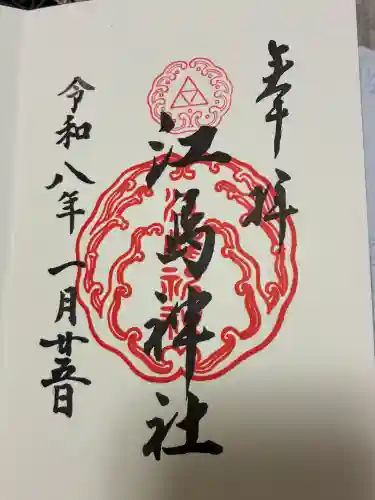 奉拝
江島神社
令和八年一月廿五日